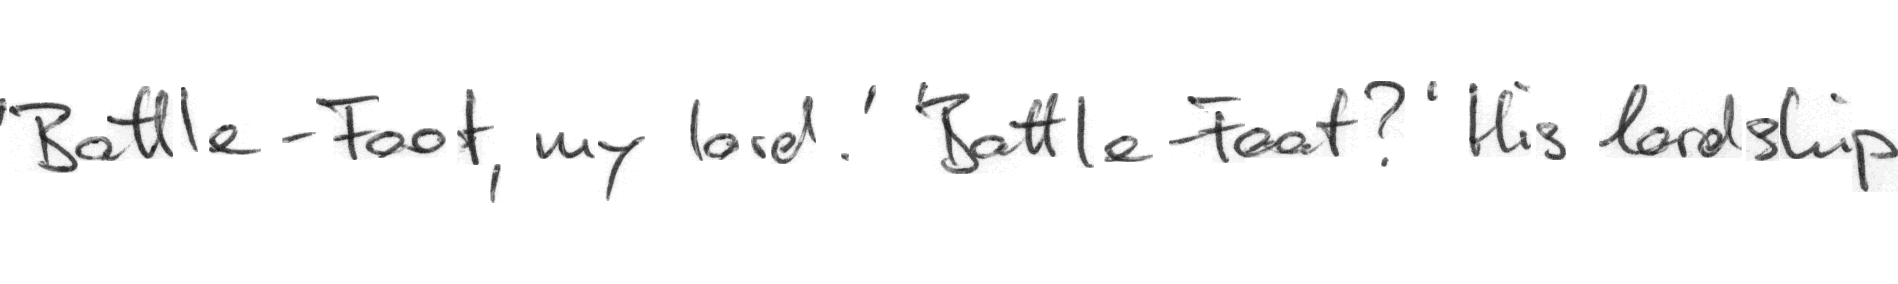 'Battle-Foot, my lord.' 'Battle-Foot?' His lordship